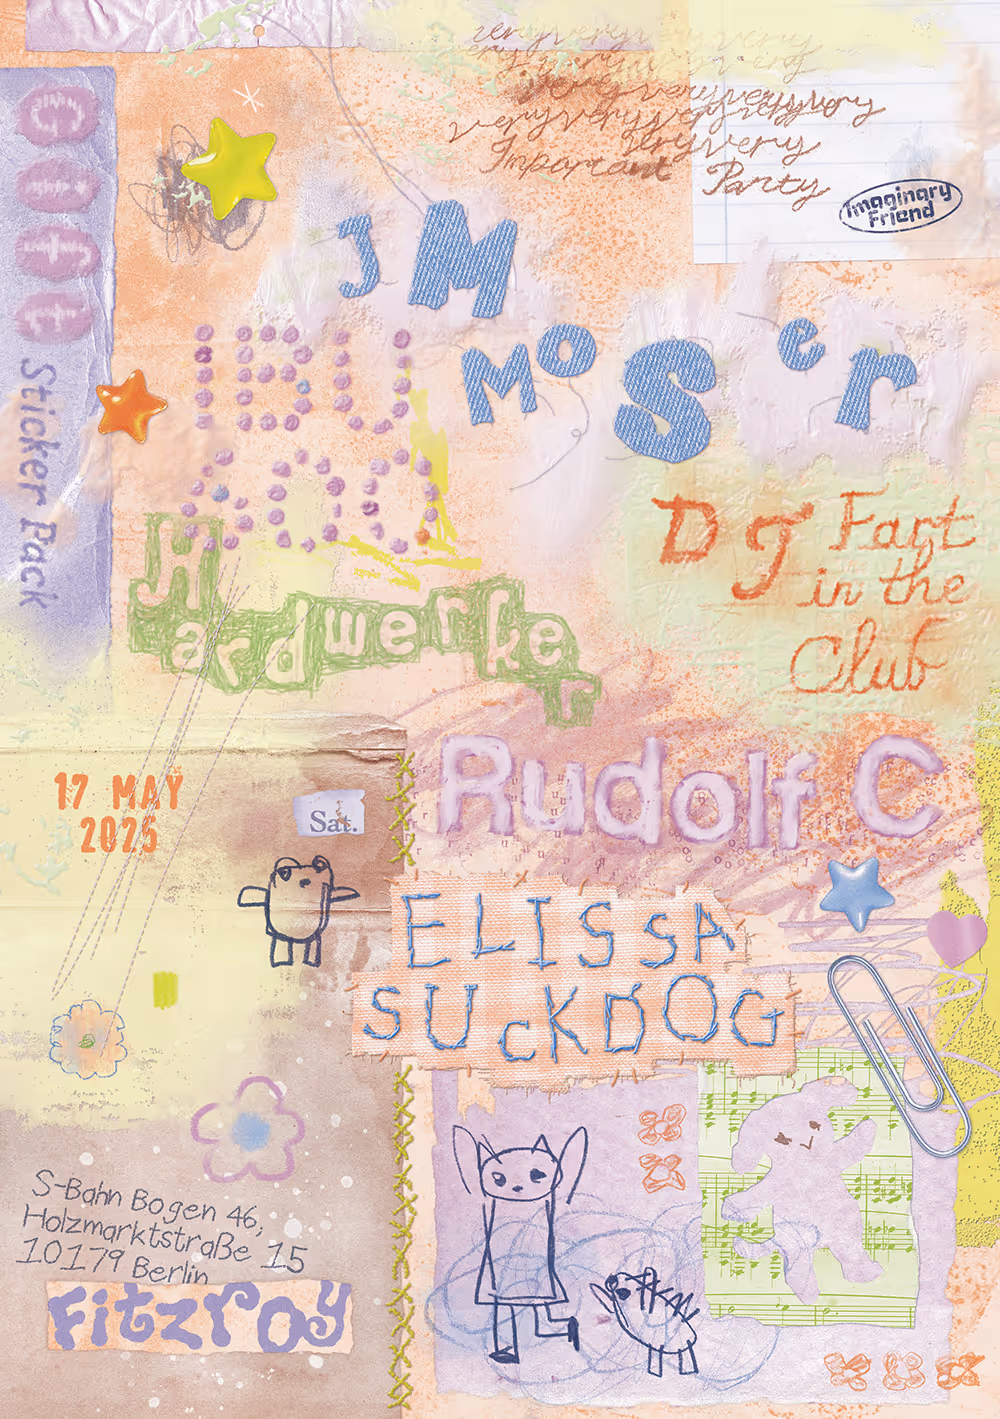 veryveryveryvery
veryveryvery
veryveryveryvery
veryveryveryveryveryvery
veryvery
Important Party
Imaginary
Friend
Gift
Sticker Pack
J M
Moser
IBU
DJ Fart
in the
Club
Hardwerker
Rudolf C
17 MAY
2025
Sat.
ELISSA
SUcKDOG
S-Bahn Bogen 46,
Holzmarktstraße 15
10179 Berlin
Fitzroy